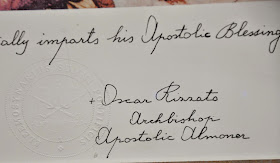 ially imparts his Apostolic Blessing
+ Oscar Rizzato
Archbishop
Apostolic Almoner